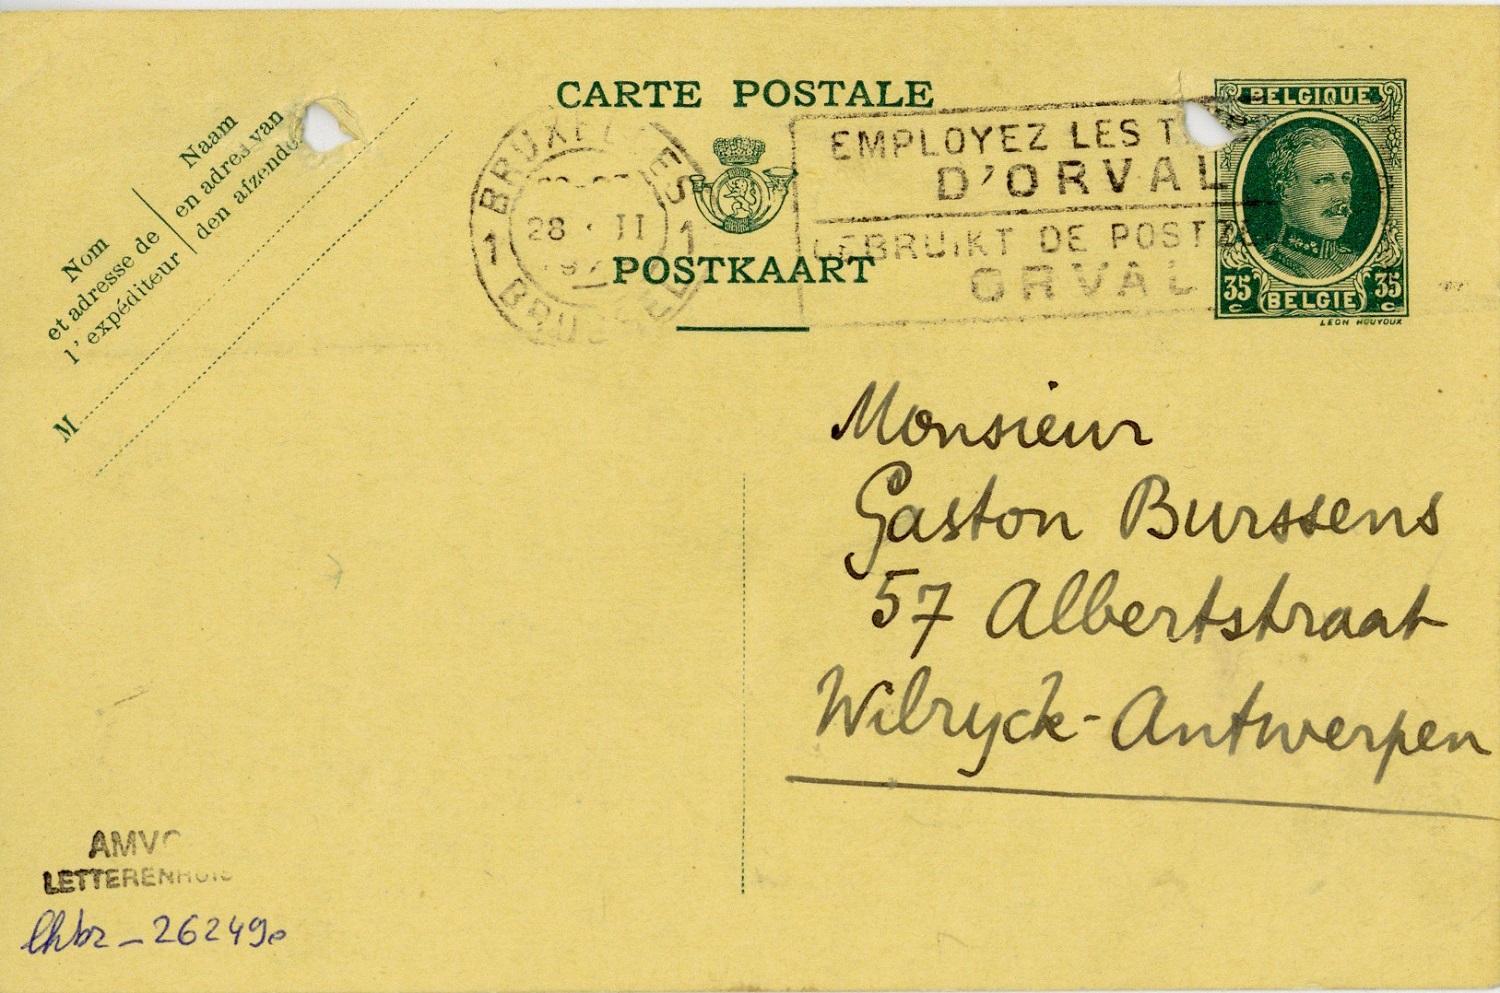 CARTE POSTALE
POSTKAART
Naam
en adres van
den afzender
Nom
et adresse de
l'expéditeur
M
BRUXELLES
1 28 · II 1
BRUSSEL
EMPLOYEZ LES
D'ORVAL
GEBRUIKT DE
ORVAL
BELGIQUE
35 c BELGIE 35 c
LEON HOUYOUX
Monsieur
Gaston Burssens
57 Albertstraat
Wilryck-Antwerpen
AMVC
LETTERENHUIS
lhbr - 26249